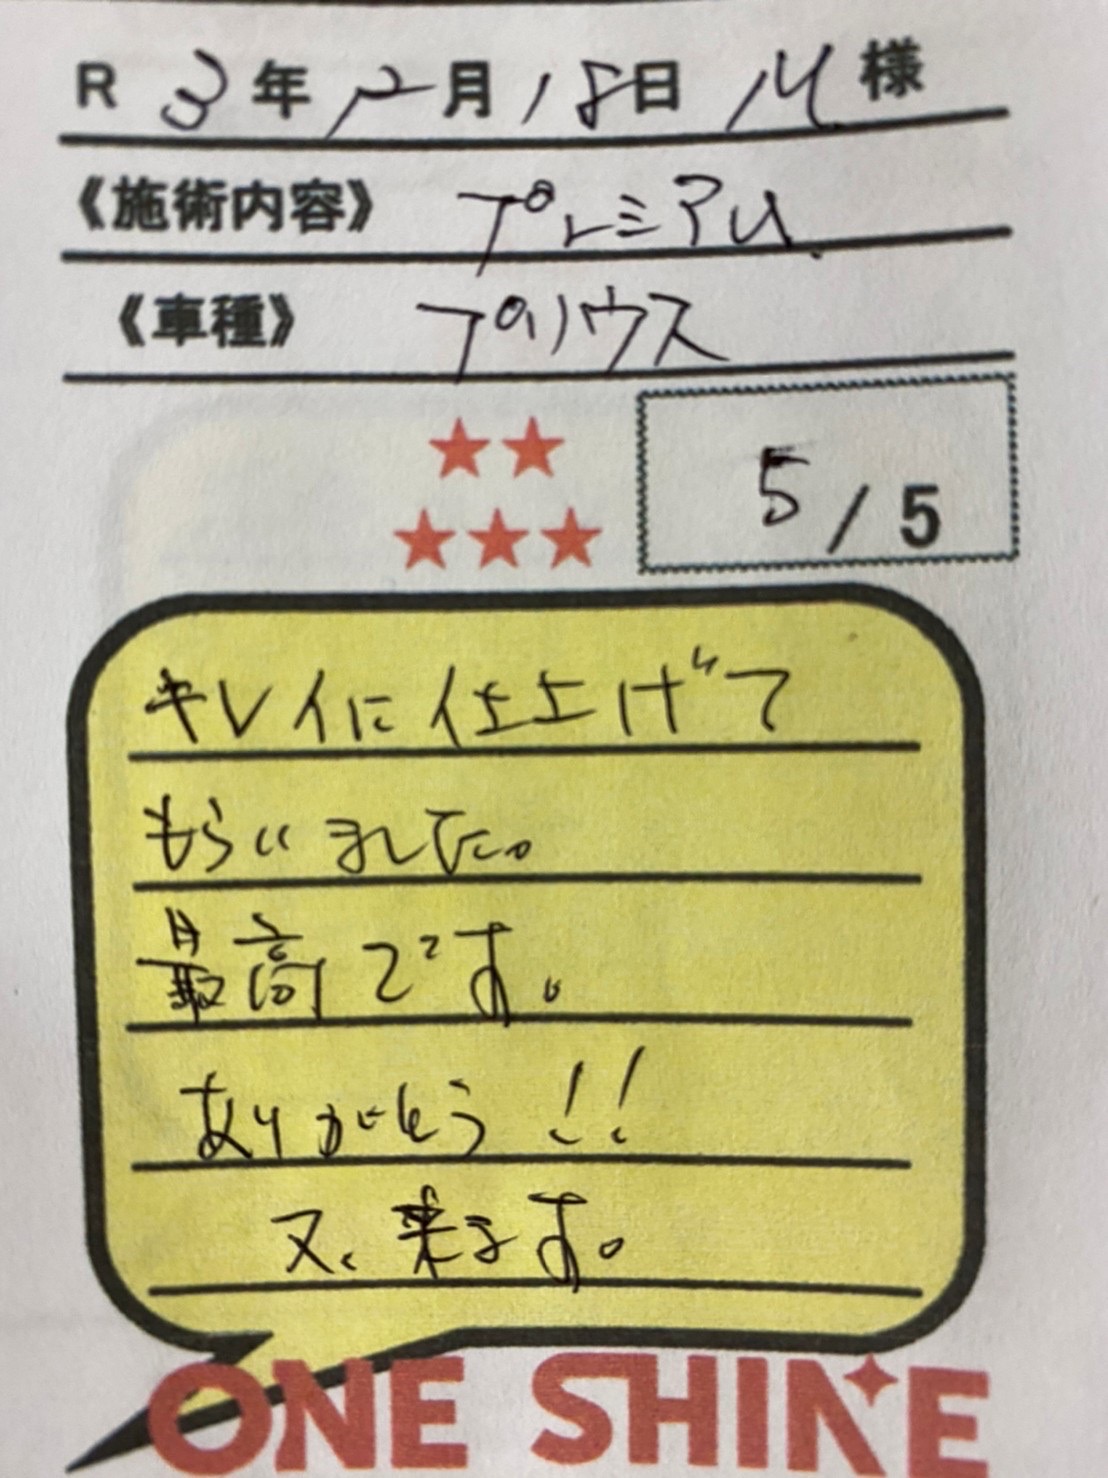 R 3年12月18日 M様
《施術内容》 プレミアム
《車種》 プリウス
5/5
キレイに仕上げて
もらいました。
最高です。
ありがとう!!
又、来ます。
ONE SHINE